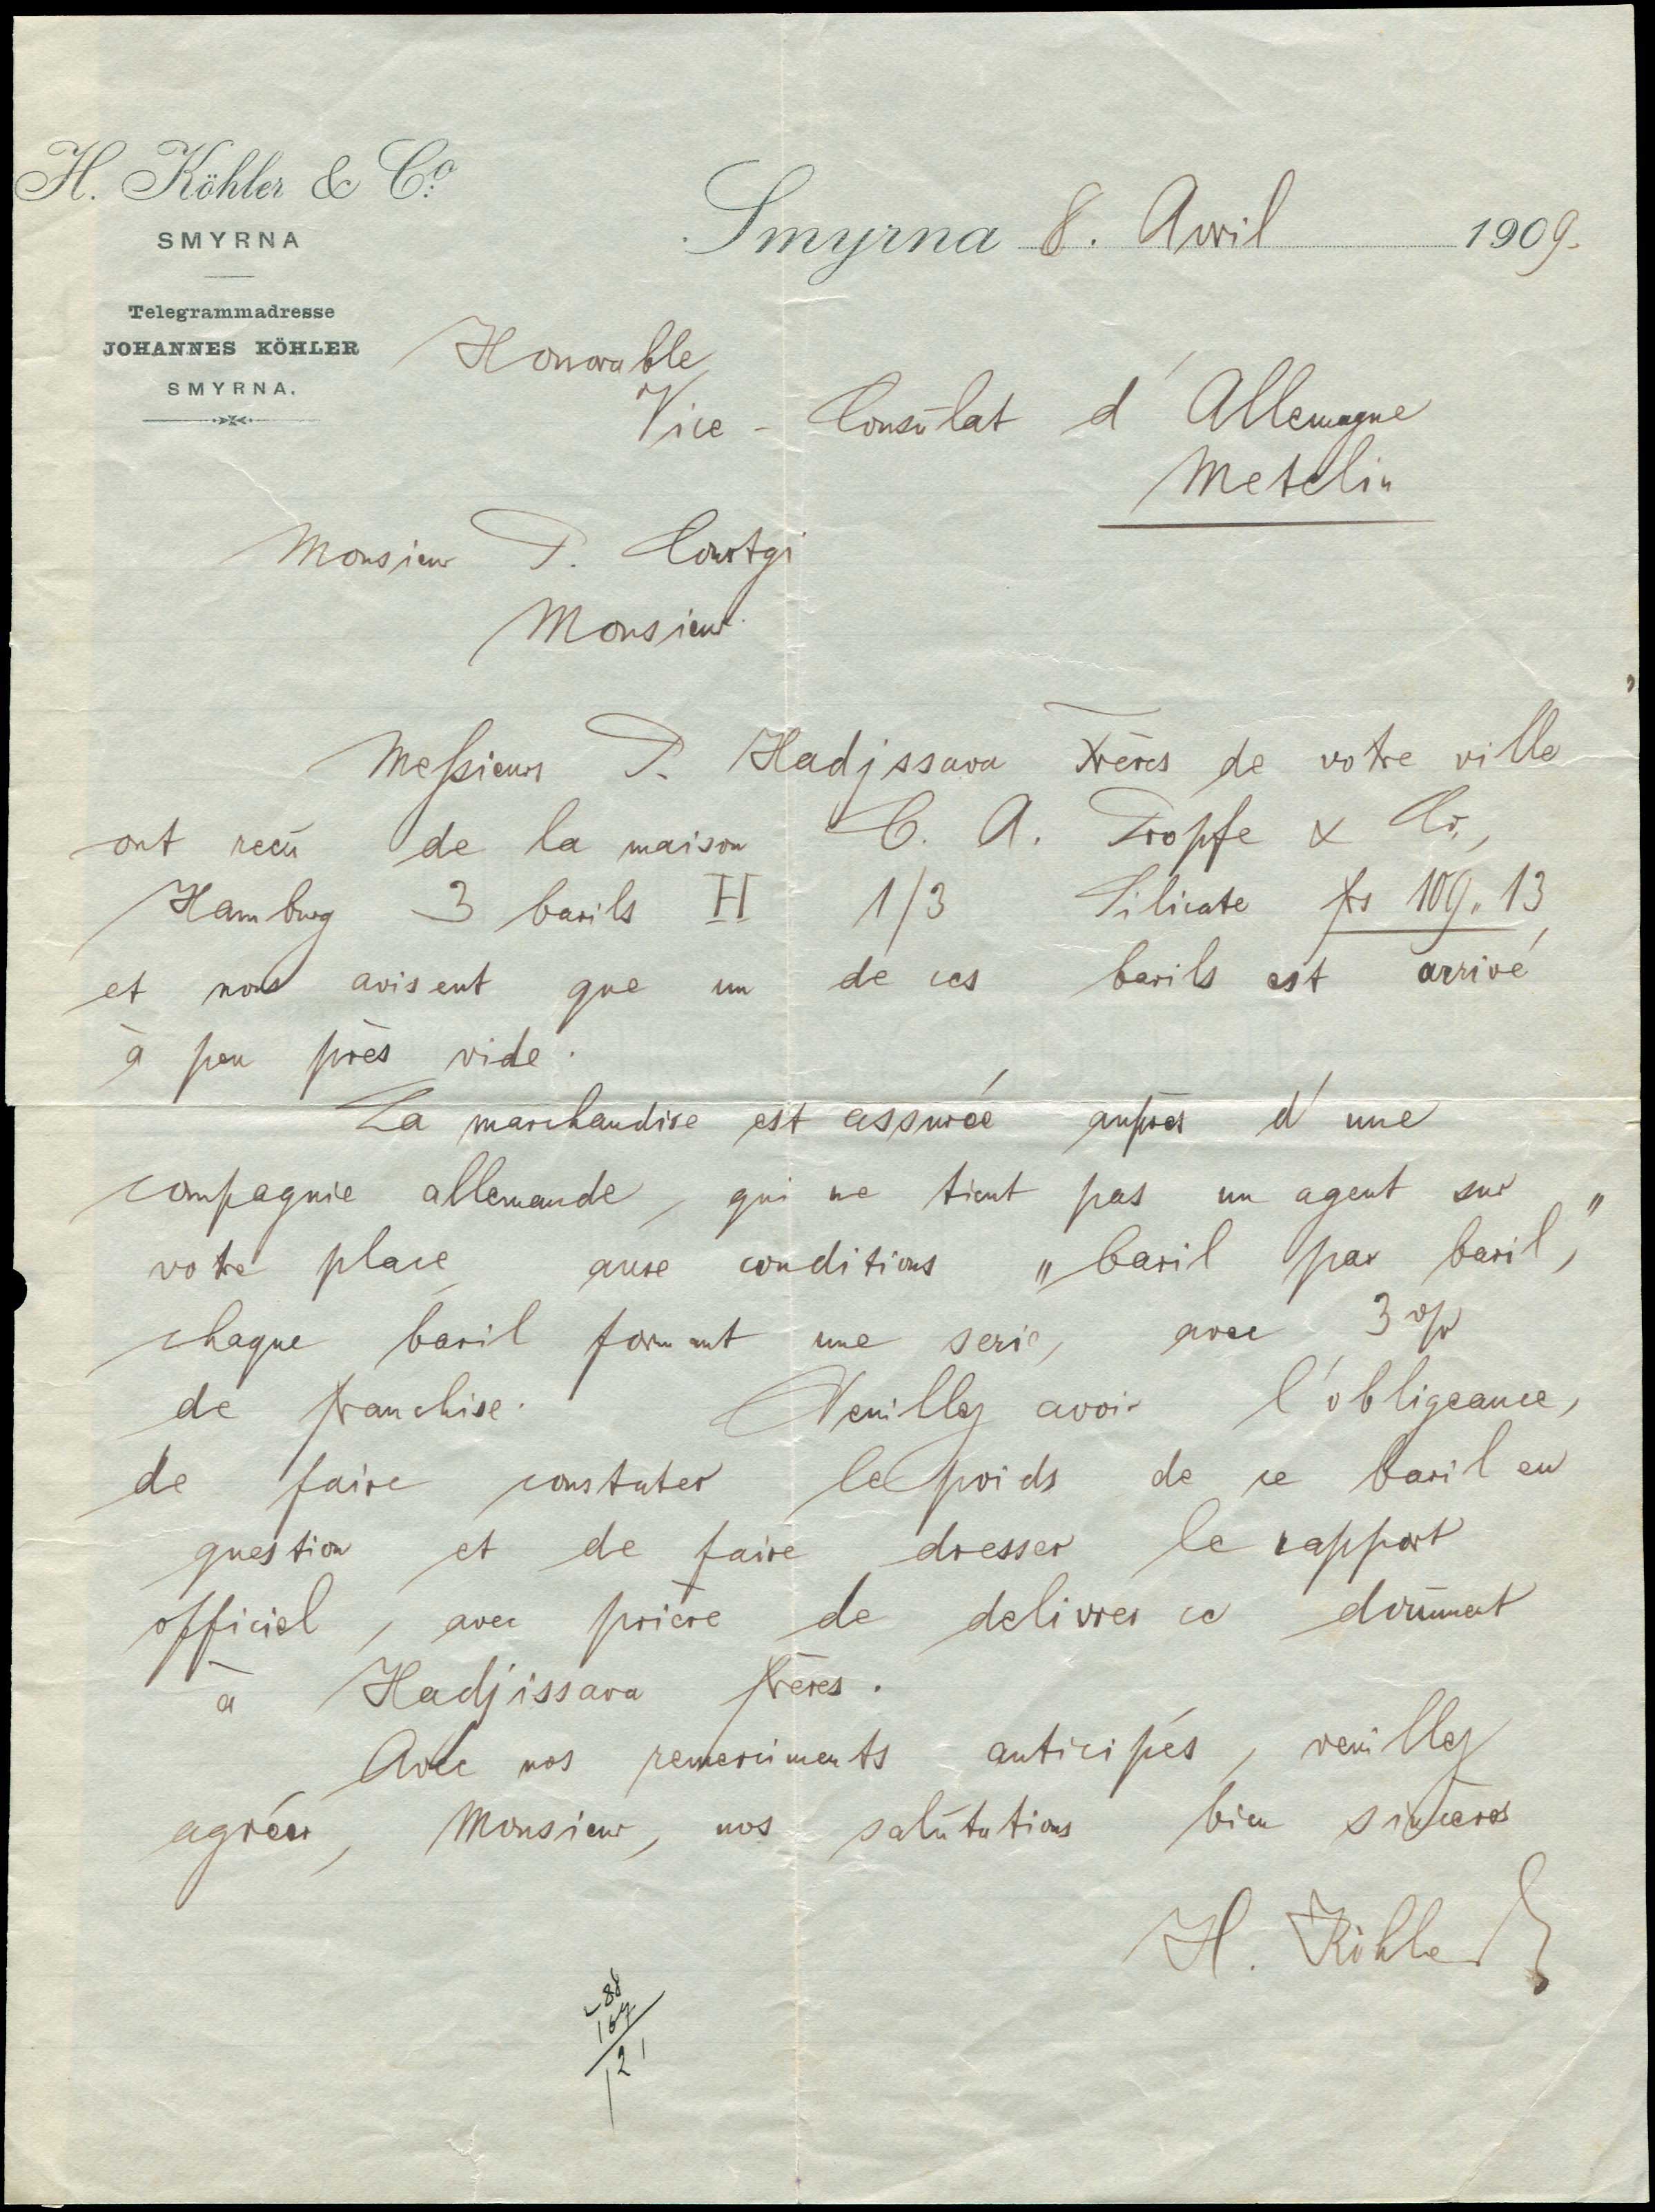 H. Köhler & Co.
SMYRNA
Telegrammadresse
JOHANNES KÖHLER
SMYRNA.
Smyrna 8. Avril 1909.
Honorable
Vice - Consulat d'Allemagne
Metelin
Monsieur P. Courtgi
Monsieur
Messieurs P. Hadjissava Frères de votre ville
ont reçu de la maison C. A. Propfe & Co.,
Hamburg 3 barils H 1/3 Silicate frs 109.13,
et nous avisent que un de ces barils est arrivé
à peu près vide.
La marchandise est assurée auprès d'une
compagnie allemande, qui ne tient pas un agent sur
votre place aux conditions „baril par baril,"
chaque baril formant une serie, avec 3 %
de franchise. Veuillez avoir l'obligeance,
de faire constater le poids de ce baril en
question et de faire dresser le rapport
officiel, avec prière de delivrer ce document
à Hadjissava frères.
Avec nos remerciments anticipés, veuillez
agréer, Monsieur, nos salutations bien sincères
H. Köhler
121